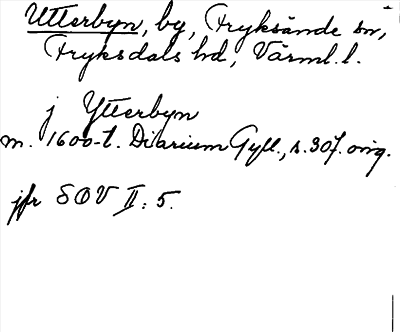 Utterbyn, by, Fryksände sn,
Fryksdals hd, Värml. l.
j Ytterbyn
m. 1600-t. Diarium Gyll., s. 307. orig.
jfr SOV II: 5.